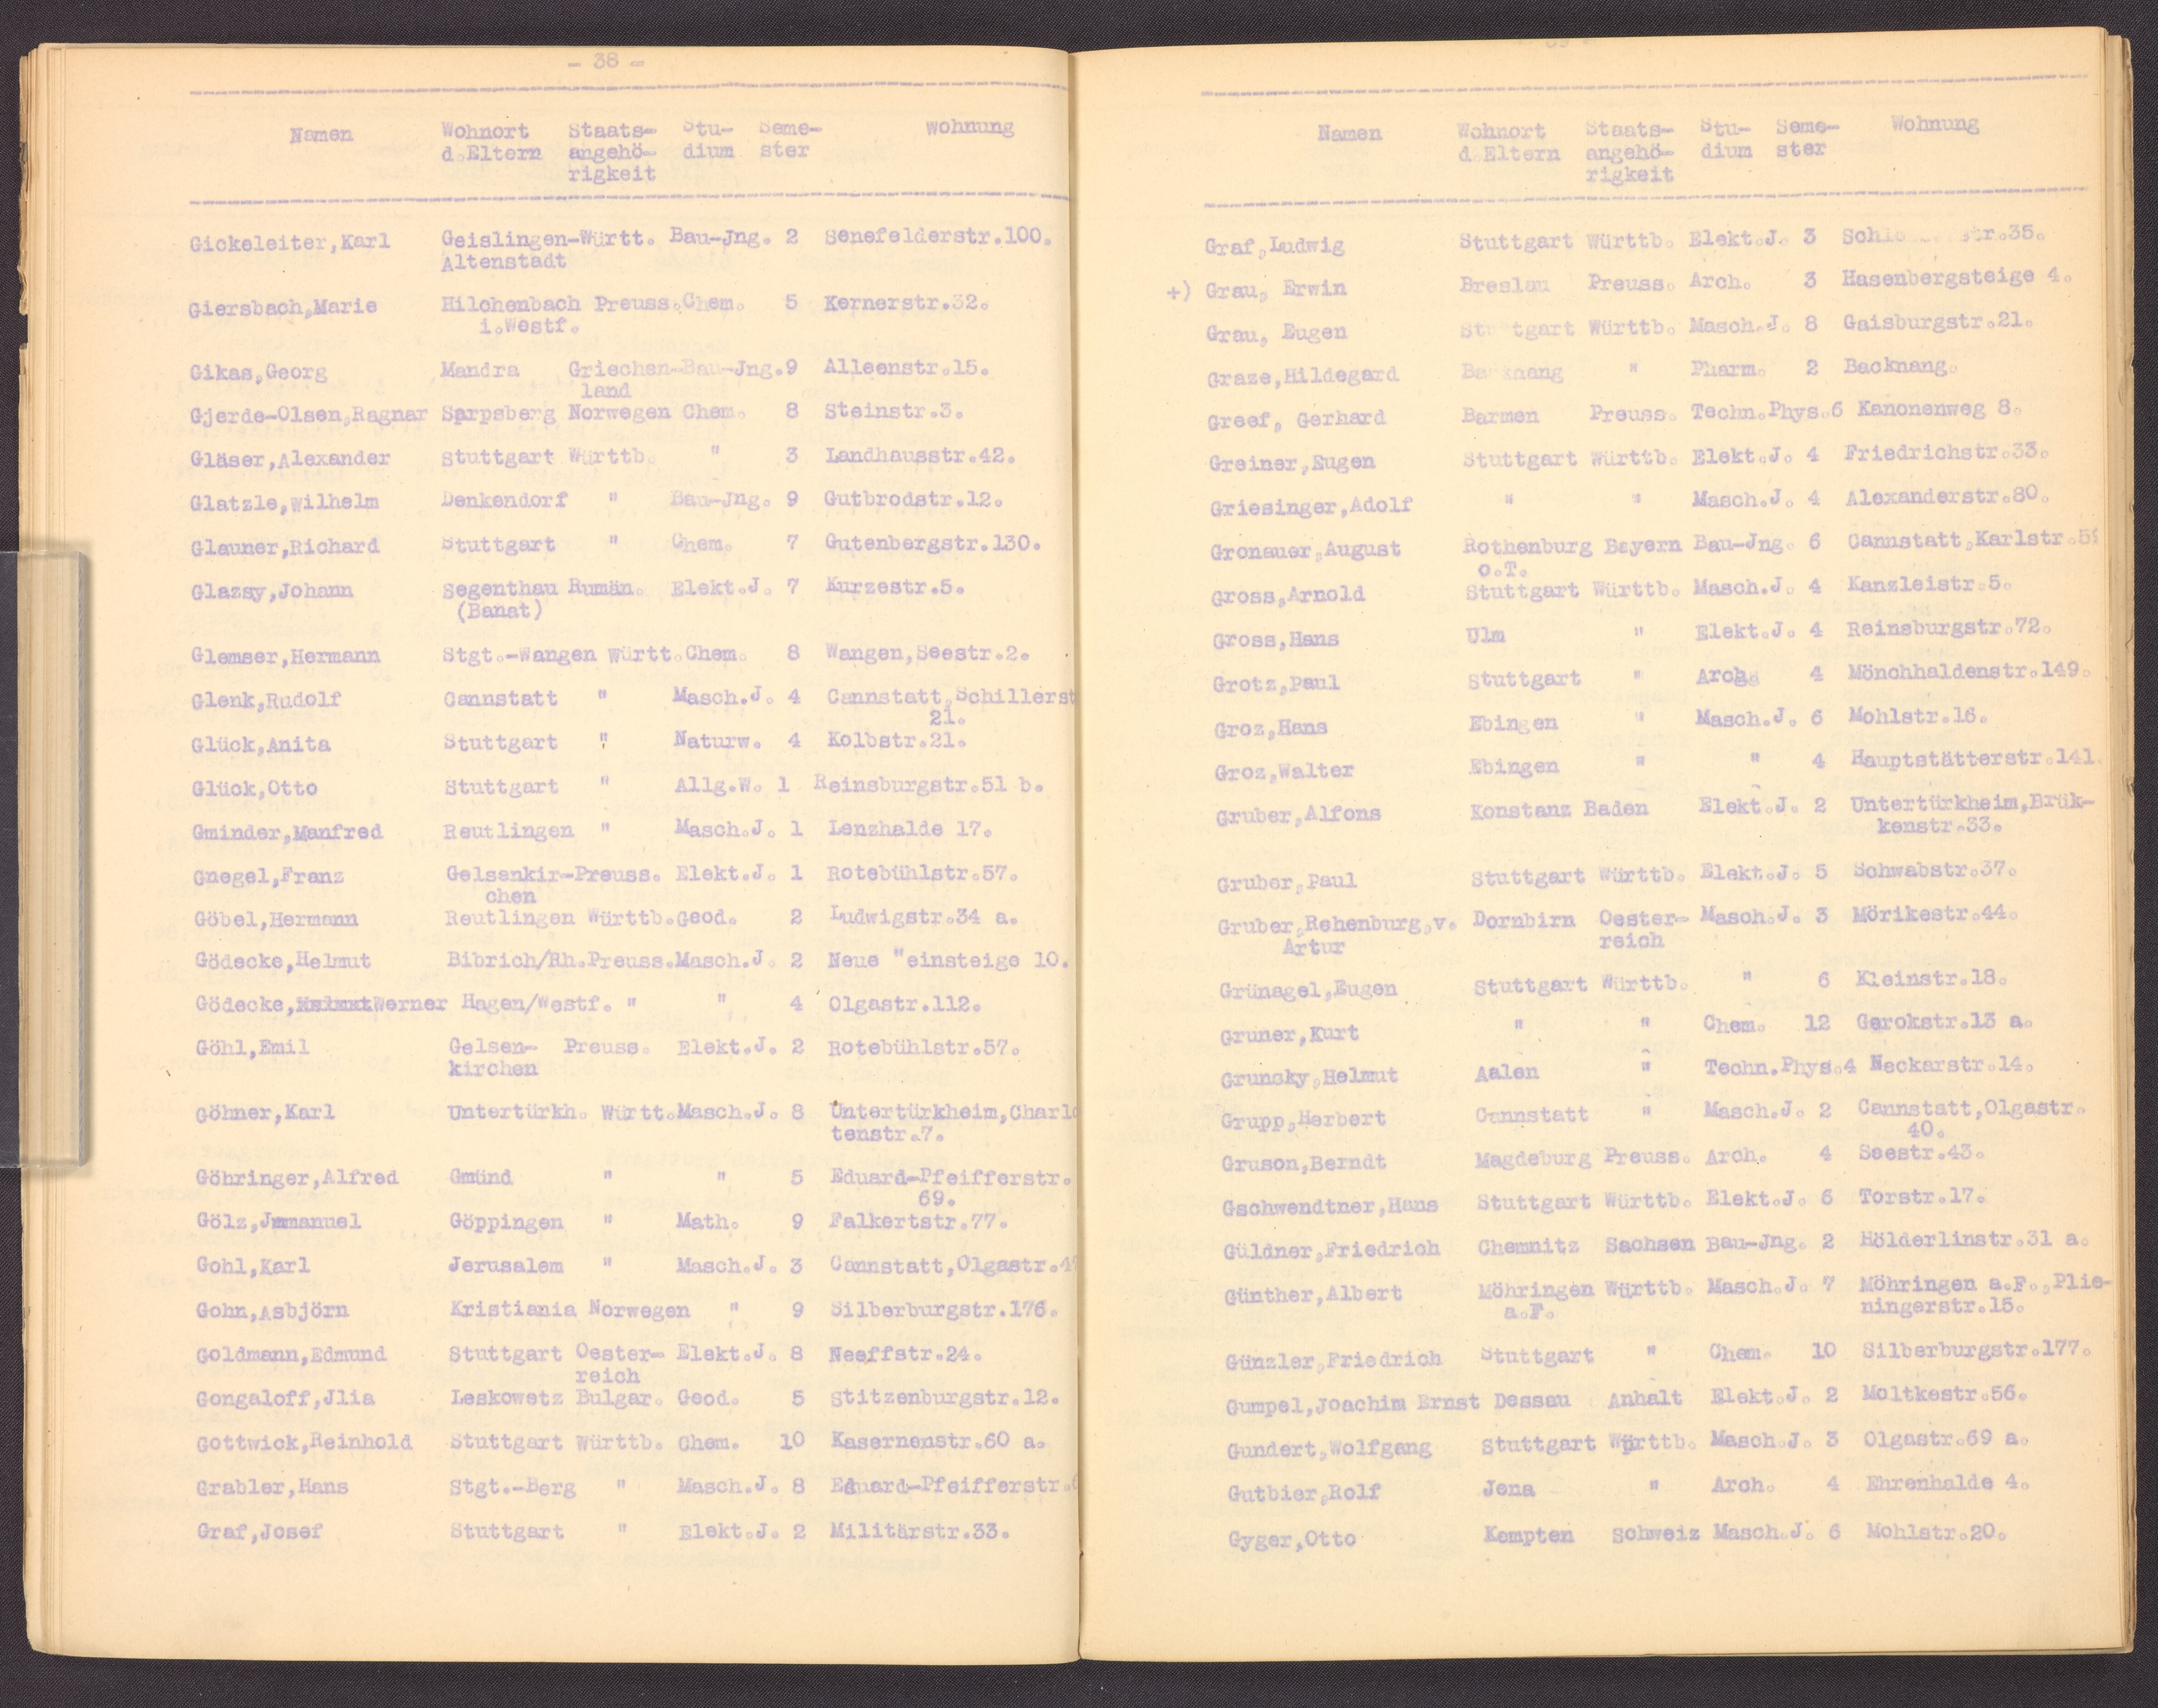 - 38 -
Namen Wohnort Staats- Stu- Seme- Wohnung
d.Eltern angehö- dium ster
rigkeit
Gickeleiter,Karl Geislingen-Württ. Bau-Jng. 2 Senefelderstr.100.
Altenstadt
Giersbach,Marie Hilchenbach Preuss.Chem. 5 Kernerstr.32.
i.Westf.
Gikas,Georg Mandra Griechen-Bau-Jng.9 Alleenstr.15.
land
Gjerde-Olsen,Ragnar Sarpsberg Norwegen Chem. 8 Steinstr.3.
Gläser,Alexander Stuttgart Württb. " 3 Landhausstr.42.
Glatzle,Wilhelm Denkendorf " Bau-Jng. 9 Gutbrodstr.12.
Glauner,Richard Stuttgart " Chem. 7 Gutenbergstr.130.
Glazsy,Johann Segenthau Rumän. Elekt.J. 7 Kurzestr.5.
(Banat)
Glemser,Hermann Stgt.-Wangen Württ.Chem. 8 Wangen,Seestr.2.
Glenk,Rudolf Cannstatt " Masch.J. 4 Cannstatt,Schillerst
21.
Glück,Anita Stuttgart " Naturw. 4 Kolbstr.21.
Glück,Otto Stuttgart " Allg.W. 1 Reinsburgstr.51 b.
Gminder,Manfred Reutlingen " Masch.J. 1 Lenzhalde 17.
Gnegel,Franz Gelsenkir-Preuss. Elekt.J. 1 Rotebühlstr.57.
chen
Göbel,Hermann Reutlingen Württb.Geod. 2 Ludwigstr.34 a.
Gödecke,Helmut Bibrich/Rh.Preuss.Masch.J. 2 Neue "einsteige 10.
Gödecke,Werner Hagen/Westf. " " 4 Olgastr.112.
Göhl,Emil Gelsen- Preuss. Elekt.J. 2 Rotebühlstr.57.
kirchen
Göhner,Karl Untertürkh. Württ.Masch.J. 8 Untertürkheim,Charlo
tenstr.7.
Göhringer,Alfred Gmünd " " 5 Eduard-Pfeifferstr.
69.
Gölz,Jmmanuel Göppingen " Math. 9 Falkertstr.77.
Gohl,Karl Jerusalem " Masch.J. 3 Cannstatt,Olgastr.
Gohn,Asbjörn Kristiania Norwegen " 9 Silberburgstr.176.
Goldmann,Edmund Stuttgart Oester- Elekt.J. 8 Neeffstr.24.
reich
Gongaloff,Jlia Leskowetz Bulgar. Geod. 5 Stitzenburgstr.12.
Gottwick,Reinhold Stuttgart Württb. Chem. 10 Kasernenstr.60 a.
Grabler,Hans Stgt.-Berg " Masch.J. 8 Eduard-Pfeifferstr.
Graf,Josef Stuttgart " Elekt.J. 2 Militärstr.33.
Namen Wohnort Staats- Stu- Seme- Wohnung
d.Eltern angehö- dium ster
rigkeit
Graf,Ludwig Stuttgart Württb. Elekt.J. 3 35.
+) Grau, Erwin Breslau Preuss. Arch. 3 Hasenbergsteige 4.
Grau, Eugen Stuttgart Württb. Masch.J. 8 Gaisburgstr.21.
Graze,Hildegard Backnang " Pharm. 2 Backnang.
Greef, Gerhard Barmen Preuss. Techn.Phys.6 Kanonenweg 8.
Greiner,Eugen Stuttgart Württb. Elekt.J. 4 Friedrichstr.33.
Griesinger,Adolf " " Masch.J. 4 Alexanderstr.80.
Gronauer,August Rothenburg Bayern Bau-Jng. 6 Cannstatt,Karlstr.
o.T.
Gross,Arnold Stuttgart Württb. Masch.J. 4 Kanzleistr.5.
Gross,Hans Ulm " Elekt.J. 4 Reinsburgstr.72.
Grotz,Paul Stuttgart " Arch. 4 Mönchhaldenstr.149.
Groz,Hans Ebingen " Masch.J. 6 Mohlstr.16.
Groz,Walter Ebingen " " 4 Hauptstätterstr.141.
Gruber,Alfons Konstanz Baden Elekt.J. 2 Untertürkheim,Brük-
kenstr.33.
Gruber,Paul Stuttgart Württb. Elekt.J. 5 Schwabstr.37.
Gruber,Rehenburg,v. Dornbirn Oester- Masch.J. 3 Mörikestr.44.
Artur reich
Grünagel,Eugen Stuttgart Württb. " 6 Kleinstr.18.
Gruner,Kurt " " Chem. 12 Gerokstr.13 a.
Grunsky,Helmut Aalen " Techn.Phys.4 Neckarstr.14.
Grupp,Herbert Cannstatt " Masch.J. 2 Cannstatt,Olgastr.
40.
Gruson,Berndt Magdeburg Preuss. Arch. 4 Seestr.43.
Gschwendtner,Hans Stuttgart Württb. Elekt.J. 6 Torstr.17.
Güldner,Friedrich Chemnitz Sachsen Bau-Jng. 2 Hölderlinstr.31 a.
Günther,Albert Möhringen Württb. Masch.J. 7 Möhringen a.F.,Plie-
a.F. ningerstr.15.
Günzler,Friedrich Stuttgart " Chem. 10 Silberburgstr.177.
Gumpel,Joachim Ernst Dessau Anhalt Elekt.J. 2 Moltkestr.56.
Gundert,Wolfgang Stuttgart Württb. Masch.J. 3 Olgastr.69 a.
Gutbier,Rolf Jena " Arch. 4 Ehrenhalde 4.
Gyger,Otto Kempten Schweiz Masch.J. 6 Mohlstr.20.